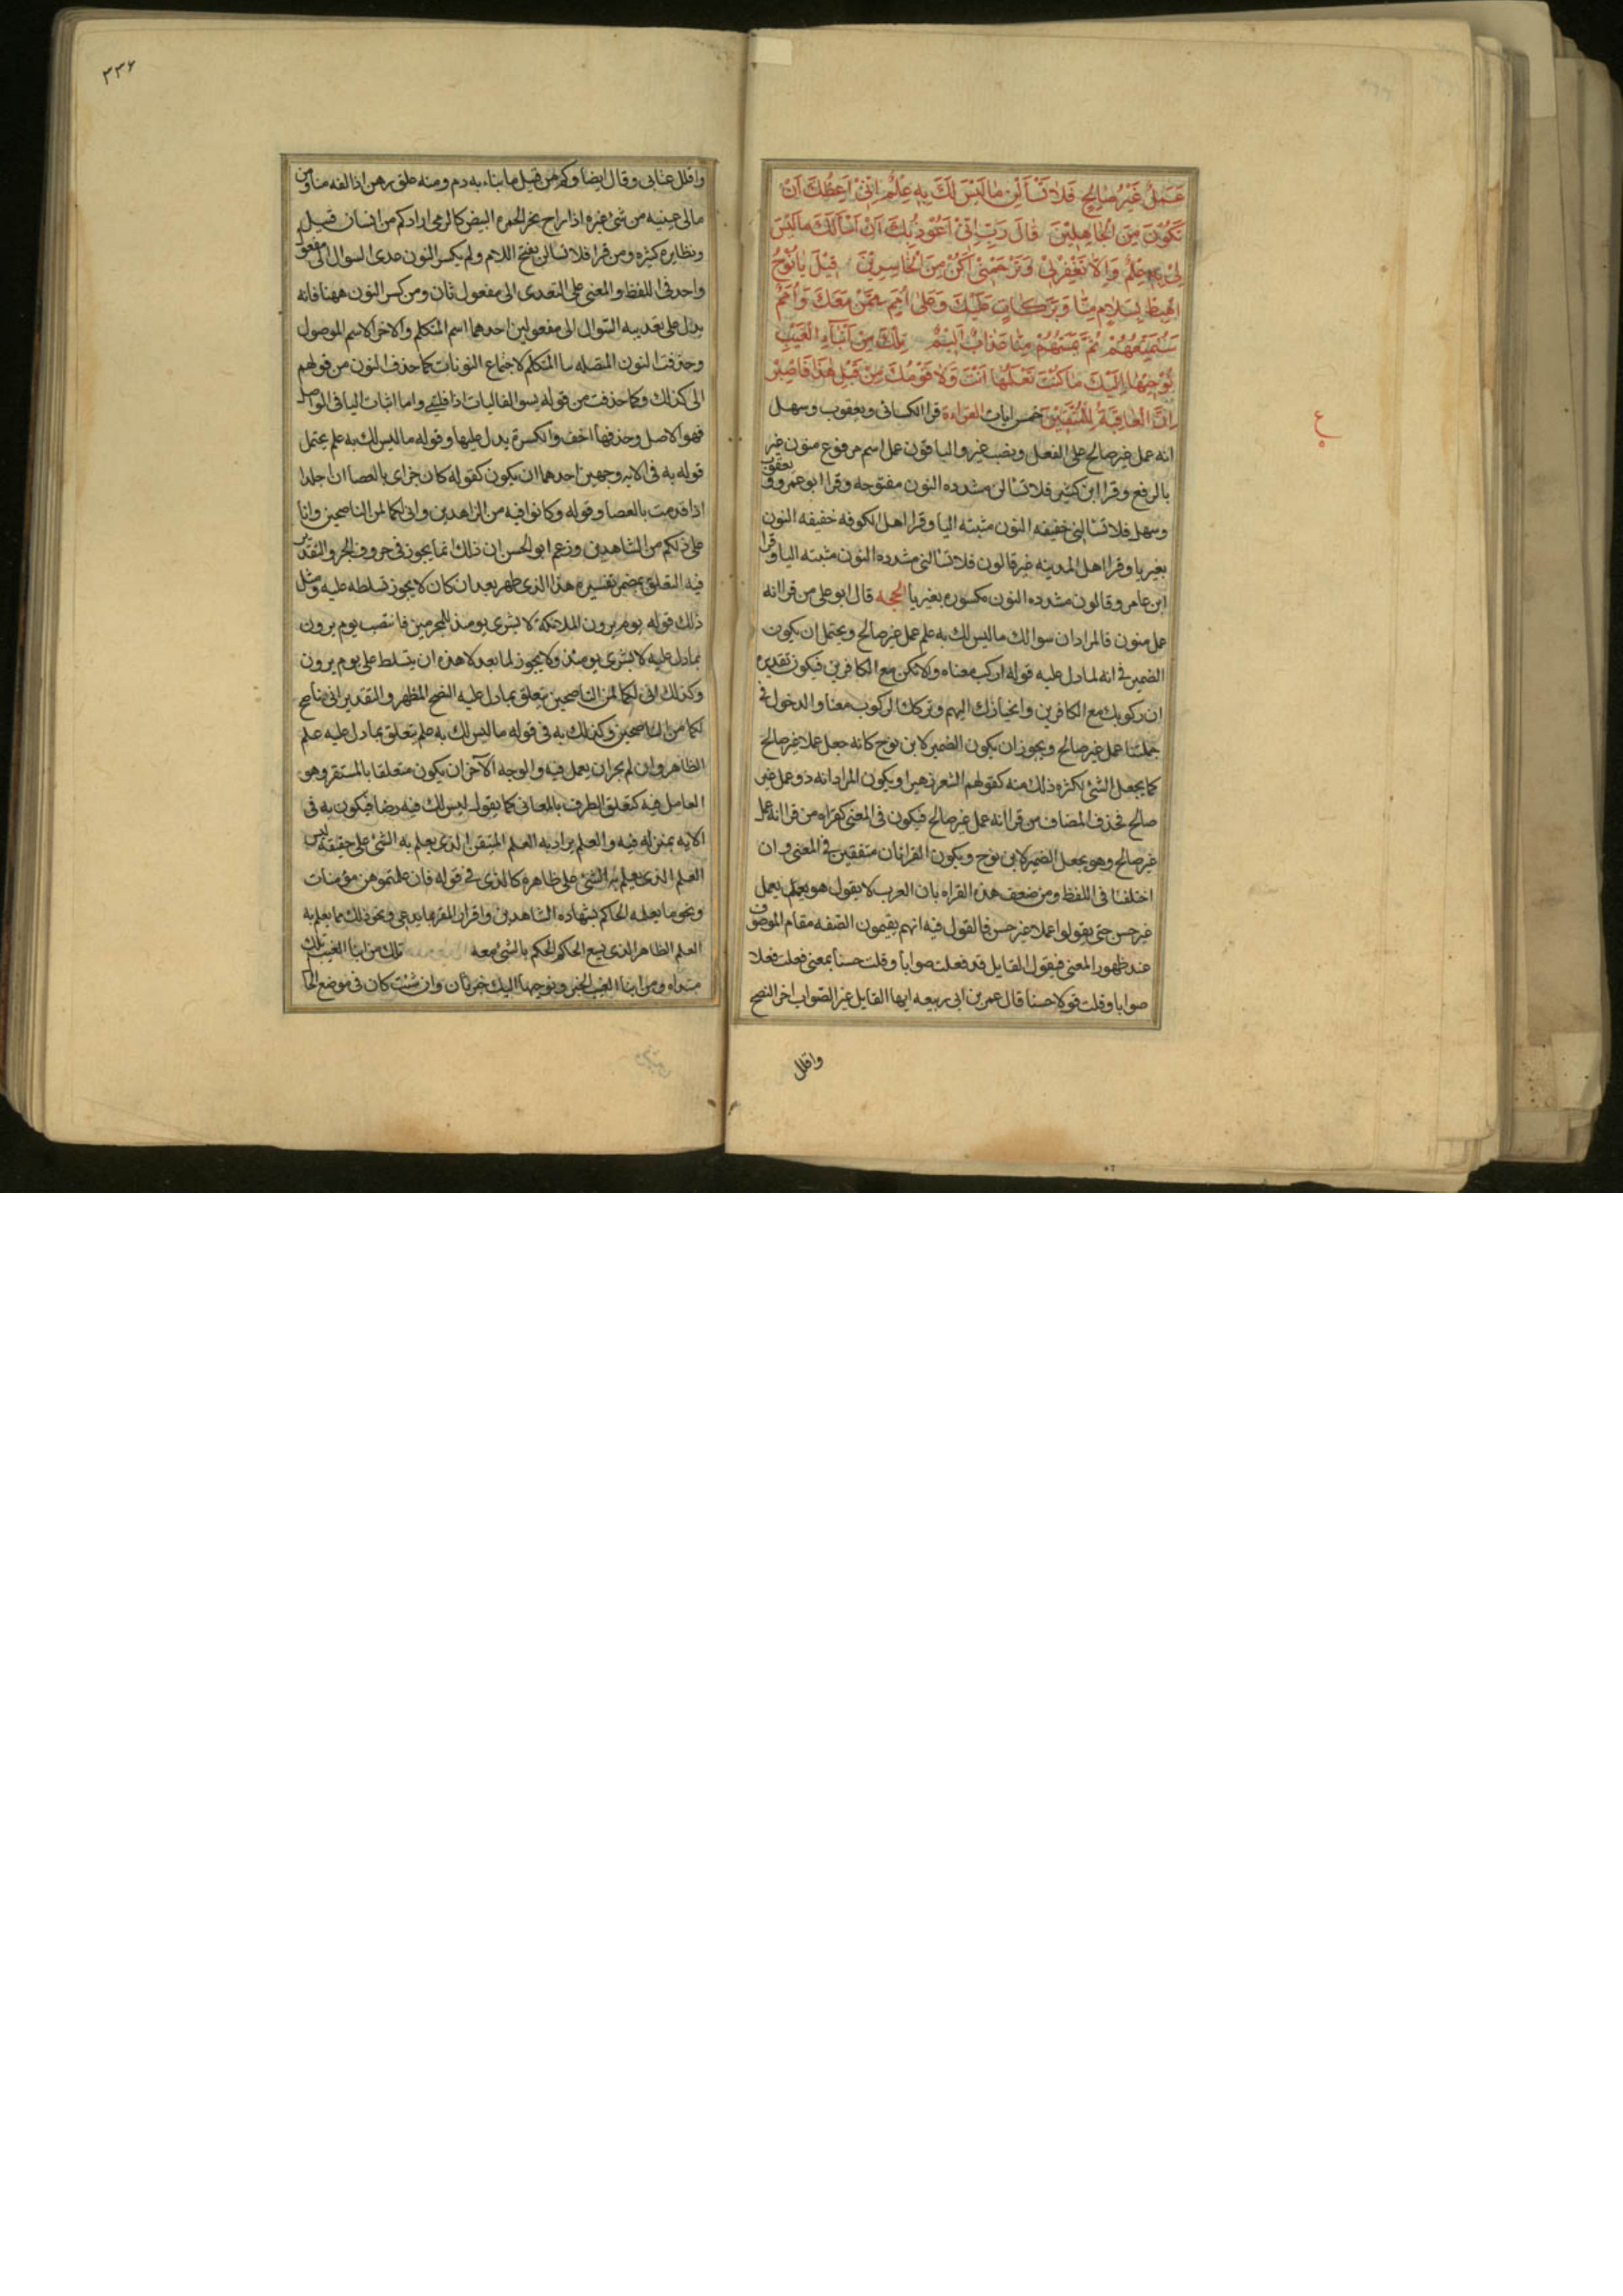 عَمَلٌ غَيْرُ صَالِحٍ فَلَا تَسْأَلْنِ مَا لَيْسَ لَكَ بِهِ عِلْمٌ اِنّي اَعِظُكَ اَنْ
تَكُونَ مِنَ الْجَاهِلِينَ قَالَ رَبِّ اِنّي اَعُوذُ بِكَ اَنْ اَسْأَلَكَ مَا لَيْسَ
لِي بِهِ عِلْمٌ وَاِلَّا تَغْفِرْ لِي وَتَرْحَمْنِي اَكُنْ مِنَ الْخَاسِرِينَ قِيلَ يَا نُوحُ
اهْبِطْ بِسَلَامٍ مِنَّا وَبَرَكَاتٍ عَلَيْكَ وَعَلى اُمَمٍ مِمَّنْ مَعَكَ وَاُمَمٌ
سَنُمَتِّعُهُمْ ثُمَّ يَمَسُّهُمْ مِنَّا عَذَابٌ اَلِيمٌ تِلْكَ مِنْ اَنْبَاءِ الْغَيْبِ
نُوحِيهَا اِلَيْكَ مَا كُنْتَ تَعْلَمُهَا اَنْتَ وَلَا قَوْمُكَ مِنْ قَبْلِ هَذَا فَاصْبِرْ
اِنَّ الْعَاقِبَةَ لِلْمُتَّقِينَ خمس ايات القراءة قرا الكسائى ويعقوب وسهل
ع
انه عمل غير صالح على الفعل ونصب غير والباقون عمل اسم مرفوع منون غير
بالرفع وقرا ابن كثير فلا تسالن مشدده النون مفتوحه وقرا ابو عمرو ويعقوب
وسهل فلا تسالنى خفيفه النون مثبته اليا وقرا اهل الكوفه خفيفه النون
بغير يا وقرا اهل المدينه غير قالون فلا تسالنى مشدده النون مثبته اليا وقرا
ابن عامر وقالون مشدده النون مكسوره بغير يا الحجه قال ابو على من قرا انه
عمل منون فالمراد ان سوالك ما ليس لك به علم عمل غير صالح ويحتمل ان يكون
الضمير فى انه لما دل عليه قوله اركب معناه ولا تكن مع الكافرين فيكون تقديره
ان ركوبك مع الكافرين وانحيازك اليهم وتركك الركوب معنا والدخول فى
جملتنا عمل غير صالح ويجوز ان يكون الضمير لابن نوح كانه جعل عملا غير صالح
كما يجعل الشئ لكثره ذلك منه كقولهم الشعر زهير او يكون المراد انه ذو عمل غير
صالح فحذف المضاف من قرا انه عمل غير صالح فيكون فى المعنى كقراه من قرا انه عمل
غير صالح وهو يجعل الضمير لابن نوح ويكون القراتان متفقين فى المعنى وان
اختلفا فى اللفظ ومن ضعف هذه القراه بان العرب لا يقول هو يعمل يعمل
غير حسن حتى يقولوا عملا غير حسن فالقول فيه انهم يقيمون الصفه مقام الموصوف
عند ظهور المعنى فيقول القايل قد فعلت صوابا وقلت حسنا بمعنى فعلت فعلا
صوابا وقلت قولا حسنا قال عمر بن ابى ربيعه ايها القايل غير الصواب اخر النصح
واقلل
٣٣۶
واقلل عتابى وقال ايضا وكم من قتيل ما يباء به دم ومنه غلق رهن اذا لفه منا ومن
مالى عينيه من شئ غيره اذا راح نحو الجمره البيض كالدمى اراد كم من انسان قتيل
ونظايره كثيره ومن قرا فلا تسالن بفتح اللام ولم يكسر النون عدى السوال الى مفعول
واحد فى اللفظ والمعنى على التعدى الى مفعول ثان ومن كسر النون ههنا فانه
يدل على تعديه السوال الى مفعولين احدهما اسم المتكلم والاخر الاسم الموصول
وحذفت النون المتصله بيا المتكلم لاجتماع النونات كما حذف النون من قولهم
انى كذلك وكما حذفت من قوله يسو الفاليات اذا فلينى واما اثبات اليا فى الوصل
فهو الاصل وحذفها اخف والكسرة يدل عليها وقوله ما ليس لك به علم يحتمل
قوله به فى الايه وجهين احدهما ان يكون كقوله كان جزاى بالعصا ان اجلدا
اذا قدمت بالعصا وقوله وكانوا فيه من الزاهدين وانى لكما لمن الناصحين وانا
على ذلكم من الشاهدين وزعم ابو الحسن ان ذلك انما يجوز فى حروف الجر والتقدير
فيه التعلق بمضمر تفسيره هذا الذى ظهر بعد ان كان لا يجوز تسلطه عليه ومثل
ذلك قوله يوم يرون الملائكة لا بشرى يومئذ للمجرمين فانتصب يوم يرون
بما دل عليه لا بشرى يومئذ ولا يجوز لما بعد لا هذه ان يتسلط على يوم يرون
وكذلك انى لكما لمن الناصحين يتعلق بما دل عليه النصح المظهر والتقدير انى ناصح
لكما من الناصحين وكذلك به فى قوله ما ليس لك به علم يتعلق بما دل عليه علم
الظاهر وان لم يجز ان يعمل فيه والوجه الآخر ان يكون متعلقا بالمستقر وهو
العامل فيه كتعلق الظرف بالمعانى كما يقول ليس لك فيه رضا فيكون به فى
الايه بمنزله فيه والعلم يراد به العلم المتيقن الذى يعلم به الشئ على حقيقته ليس
العلم الذى يعلم به الشئ على ظاهره كالذى فى قوله فان علمتموهن مؤمنات
ونحو ما يعلمه الحاكم بشهاده الشاهدين واقرار المقر بما يدعى ونحو ذلك مما يعلم به
العلم الظاهر الذى يسع الحاكم الحكم بالشئ معه تلك من انبا الغيب تلك
مبتداه ومن انبا الغيب الخبر ونوحيها اليك خبر ثان وان شئت كان فى موضع الحا